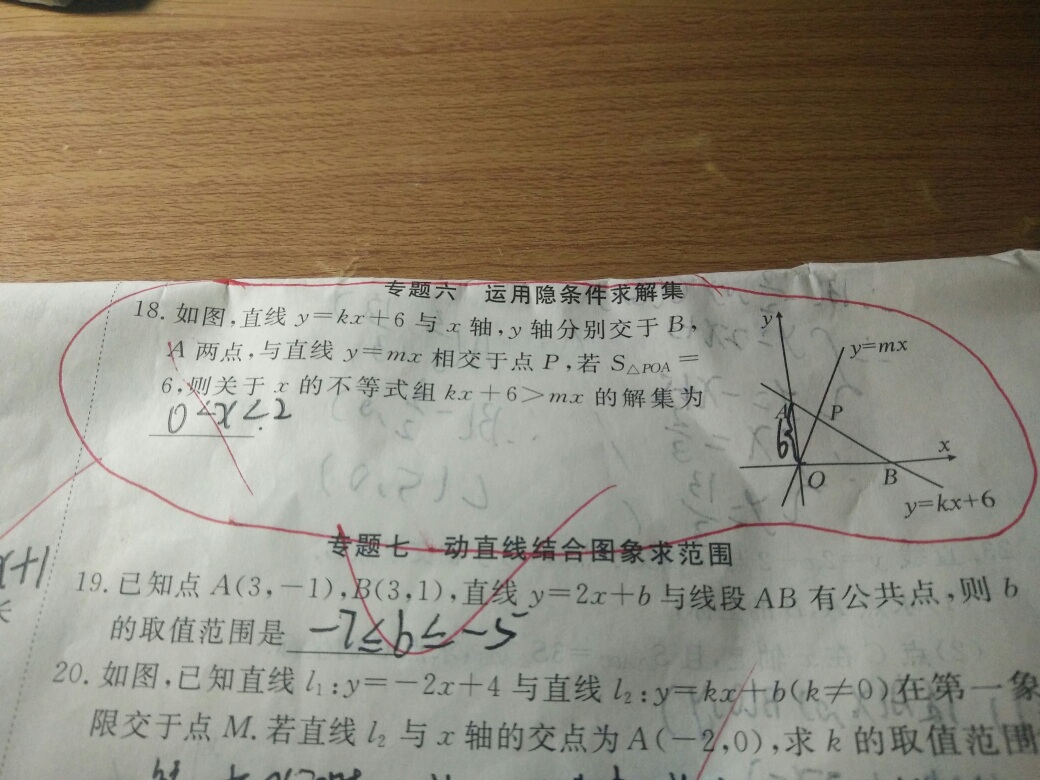 专题六 运用隐条件求解集
18. 如图,直线 y=kx+6 与 x 轴,y 轴分别交于 B,
A 两点,与直线 y=mx 相交于点 P,若 S△POA=
6,则关于 x 的不等式组 kx+6>mx 的解集为
0<x<2
y
y=mx
A
P
6
x
O
B
y=kx+6
专题七 动直线结合图象求范围
19. 已知点 A(3,-1),B(3,1),直线 y=2x+b 与线段 AB 有公共点,则 b
的取值范围是 -7≤b≤-5
20. 如图,已知直线 l₁:y=-2x+4 与直线 l₂:y=kx+b(k≠0)在第一象
限交于点 M. 若直线 l₂ 与 x 轴的交点为 A(-2,0),求 k 的取值范围